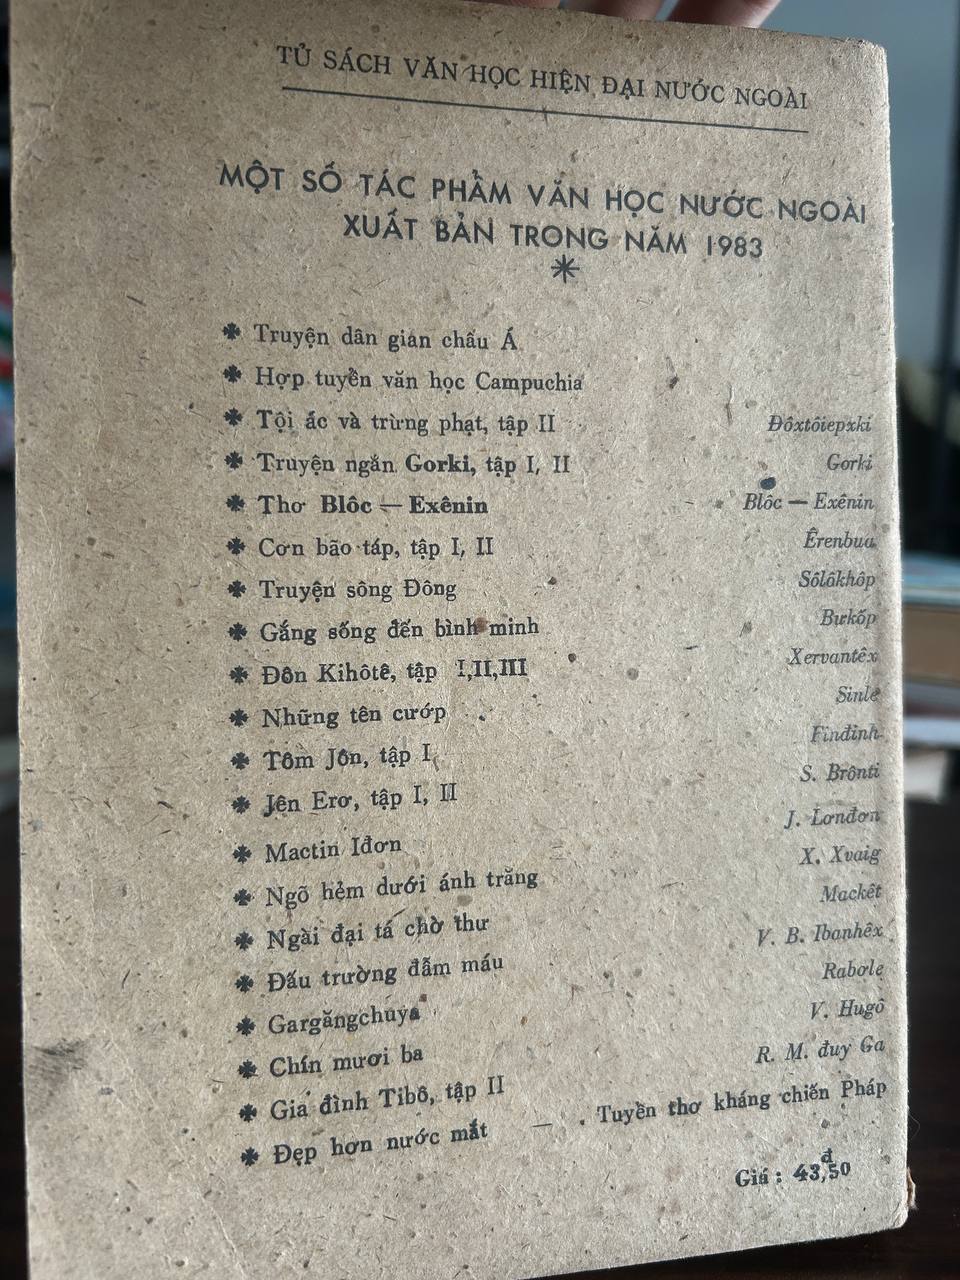 TỦ SÁCH VĂN HỌC HIỆN ĐẠI NƯỚC NGOÀI
MỘT SỐ TÁC PHẨM VĂN HỌC NƯỚC NGOÀI
XUẤT BẢN TRONG NĂM 1983
Truyện dân gian châu Á
Hợp tuyển văn học Campuchia
Tội ác và trừng phạt, tập II Đôxtôiepxki
Truyện ngắn Gorki, tập I, II Gorki
Thơ Blôc — Exênin Blôc — Exênin
Cơn bão táp, tập I, II Êrenbua
Truyện sông Đông Sôlôkhôp
Gắng sống đến bình minh Bưkốp
Đôn Kihôtê, tập I,II,III Xervantêx
Những tên cướp Sinle
Tôm Jôn, tập I Finđinh
Jên Erơ, tập I, II S. Brônti
Mactin Iđơn J. Lơnđơn
Ngõ hẻm dưới ánh trăng X. Xvaig
Ngài đại tá chờ thư Mackêt
Đấu trường đẫm máu V. B. Ibanhêx
Gargăngchuya Rabơle
Chín mươi ba V. Hugô
Gia đình Tibô, tập II R. M. đuy Ga
Đẹp hơn nước mắt — Tuyển thơ kháng chiến Pháp
Giá : 43,đ50